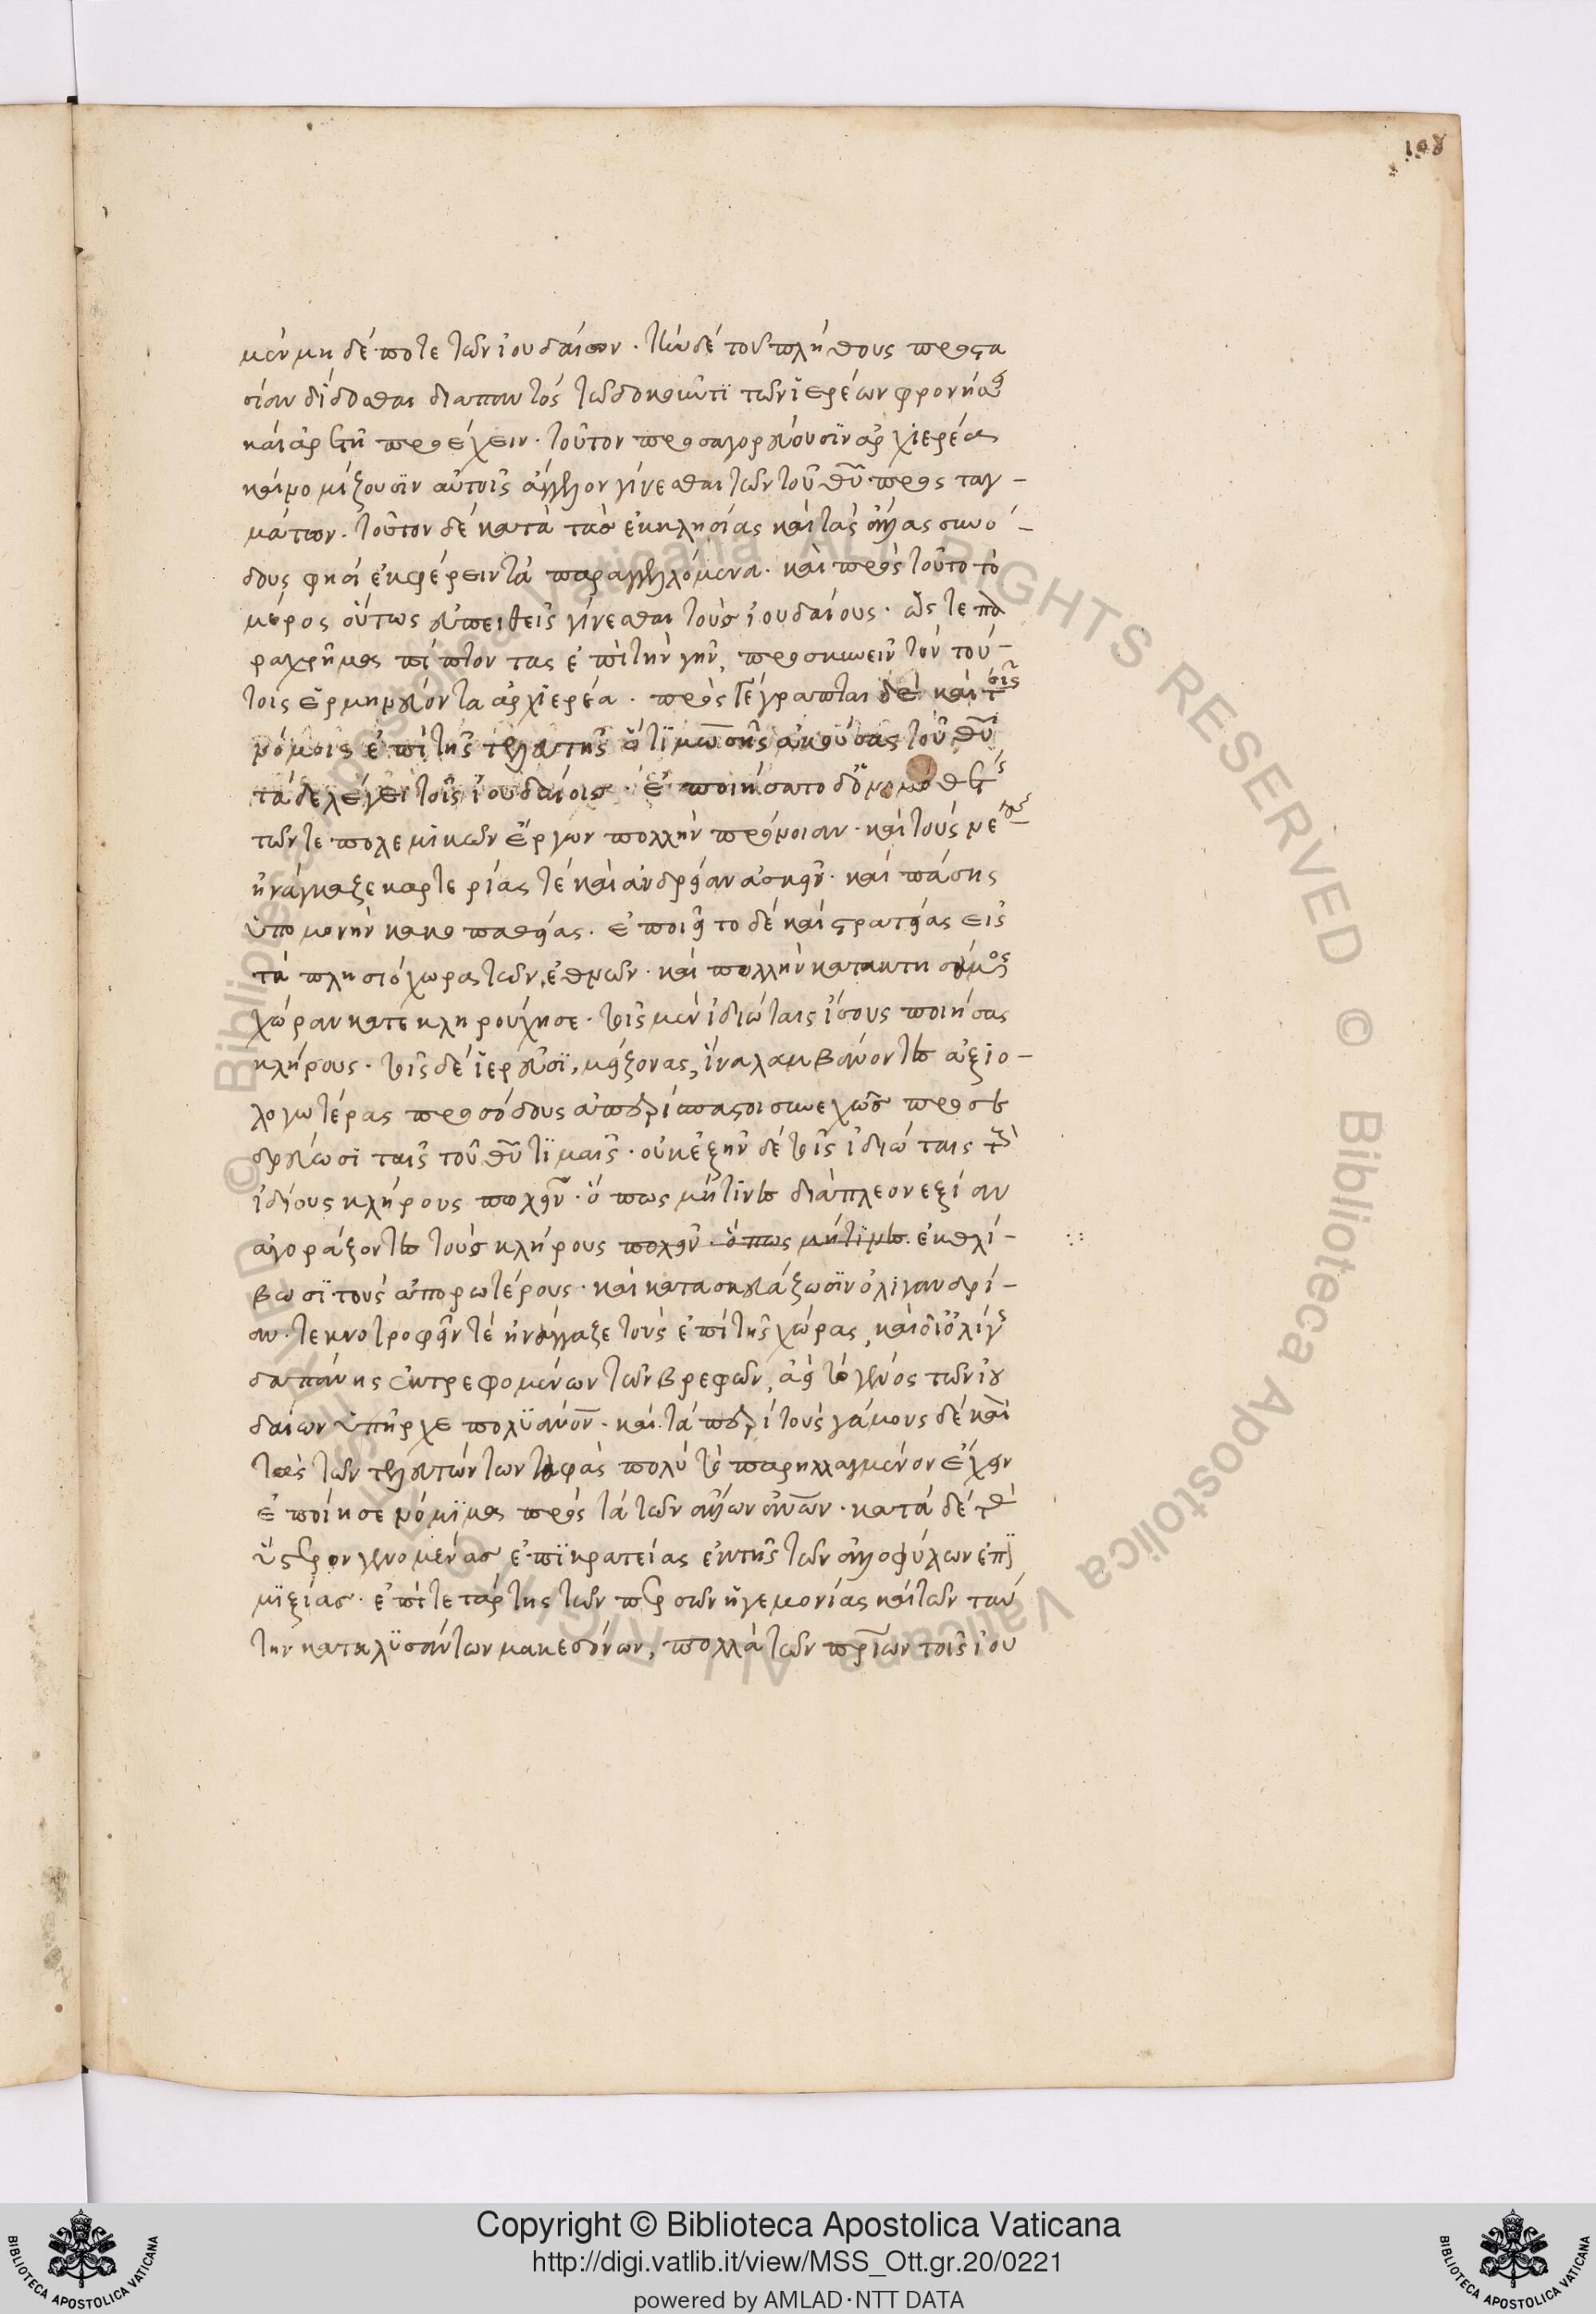 108
μὲν μηδέποτε τῶν ἰουδαίων· τὴν δὲ τοῦ πλήθους προστα
σίαν δίδοσθαι διαπαντὸς τῷ δοκοῦντι τῶν ἱερέων φρονήσει
καὶ ἀρετῇ προέχειν· τοῦτον προσαγορεύουσιν ἀρχιερέα
καὶ νομίζουσιν αὐτοῖς ἄγγελον γίνεσθαι τῶν τοῦ θῦ προσταγ-
μάτων· τοῦτον δὲ κατὰ τὰς ἐκκλησίας καὶ τὰς ἄλλας συνό-
δους φησὶ ἐκφέρειν τὰ παραγγελλόμενα· καὶ πρὸς τοῦτο τὸ
μέρος οὕτως εὐπειθεῖς γίνεσθαι τοὺς ἰουδαίους· ὥστε πα
ραχρῆμα πίπτοντας ἐπὶ τὴν γῆν, προσκυνεῖν τὸν τού-
τοις ἑρμηνεύοντα ἀρχιερέα· προσγέγραπται δὲ καὶ τοῖς
νόμοις ἐπὶ τῆς τελευτῆς ὅτι μωσῆς ἀκούσας τοῦ θῦ
τάδε λέγει τοῖς ἰουδαίοις· ἐποιήσατο δ' ὁ νομοθέτης
τῶν τε πολεμικῶν ἔργων πολλὴν πρόνοιαν· καὶ τοὺς νέους
ἠνάγκαζε καρτερίας τὲ καὶ ἀνδρείαν ἀσκεῖν· καὶ πάσης
ὑπομονὴν κακοπαθείας· ἐποιεῖτο δὲ καὶ στρατείας εἰς
τὰ πλησιόχωρα τῶν ἐθνῶν· καὶ πολλὴν κατακτησάμενος
χώραν κατεκληρούχησε· τοῖς μὲν ἰδιώταις ἴσους ποιήσας
κλήρους· τοῖς δὲ ἱερεῦσι, μείζονας, ἵνα λαμβάνοντες ἀξιο-
λογωτέρας προσόδους ἀπερίσπαστοι συνεχῶς προσε
δρεύωσι ταῖς τοῦ θῦ τιμαῖς· οὐκ ἐξῆν δὲ τοῖς ἰδιώταις τοὺς
ἰδίους κλήρους πωλεῖν· ὅπως μή τινες διὰ πλεονεξίαν
ἀγοράζοντες τοὺς κλήρους πολεῖν· ὅπως μή τινες ἐκθλί-
βωσι τοὺς ἀπορωτέρους· καὶ κατασκευάζωσιν ὀλιγανδρί-
αν· τεκνοτροφεῖν τὲ ἠνάγκαζε τοὺς ἐπὶ τῆς χώρας, καὶ δι' ὀλίγης
δαπάνης ἐκτρεφομένων τῶν βρεφῶν, ἀεὶ τὸ γένος τῶν ἰου
δαίων ὑπῆρχε πολυάνον· καὶ τὰ περὶ τοὺς γάμους δὲ καὶ
τὰς τῶν τελευτώντων ταφὰς πολὺ τὸ παρηλλαγμένον ἔχειν
ἐποίησε νόμιμα πρὸς τὰ τῶν ἄλλων ἀνων· κατὰ δὲ τὰς
ὕστερον γενομένας ἐπικρατείας ἐκ τῆς τῶν ἀλλοφύλων ἐπι
μιξίας· ἐπί τε τάρτης τῶν περσῶν ἡγεμονίας καὶ τῶν ταύ
την καταλυσάντων μακεδόνων, πολλὰ τῶν πρίων τοῖς ἰου
Copyright © Biblioteca Apostolica Vaticana
http://digi.vatlib.it/view/MSS_Ott.gr.20/0221
powered by AMLAD·NTT DATA
BIBLIOTECA APOSTOLICA VATICANA
BIBLIOTECA APOSTOLICA VATICANA
© Biblioteca Apostolica Vaticana ALL RIGHTS RESERVED © Biblioteca Apostolica Vaticana ALL RIGHTS RESERVED